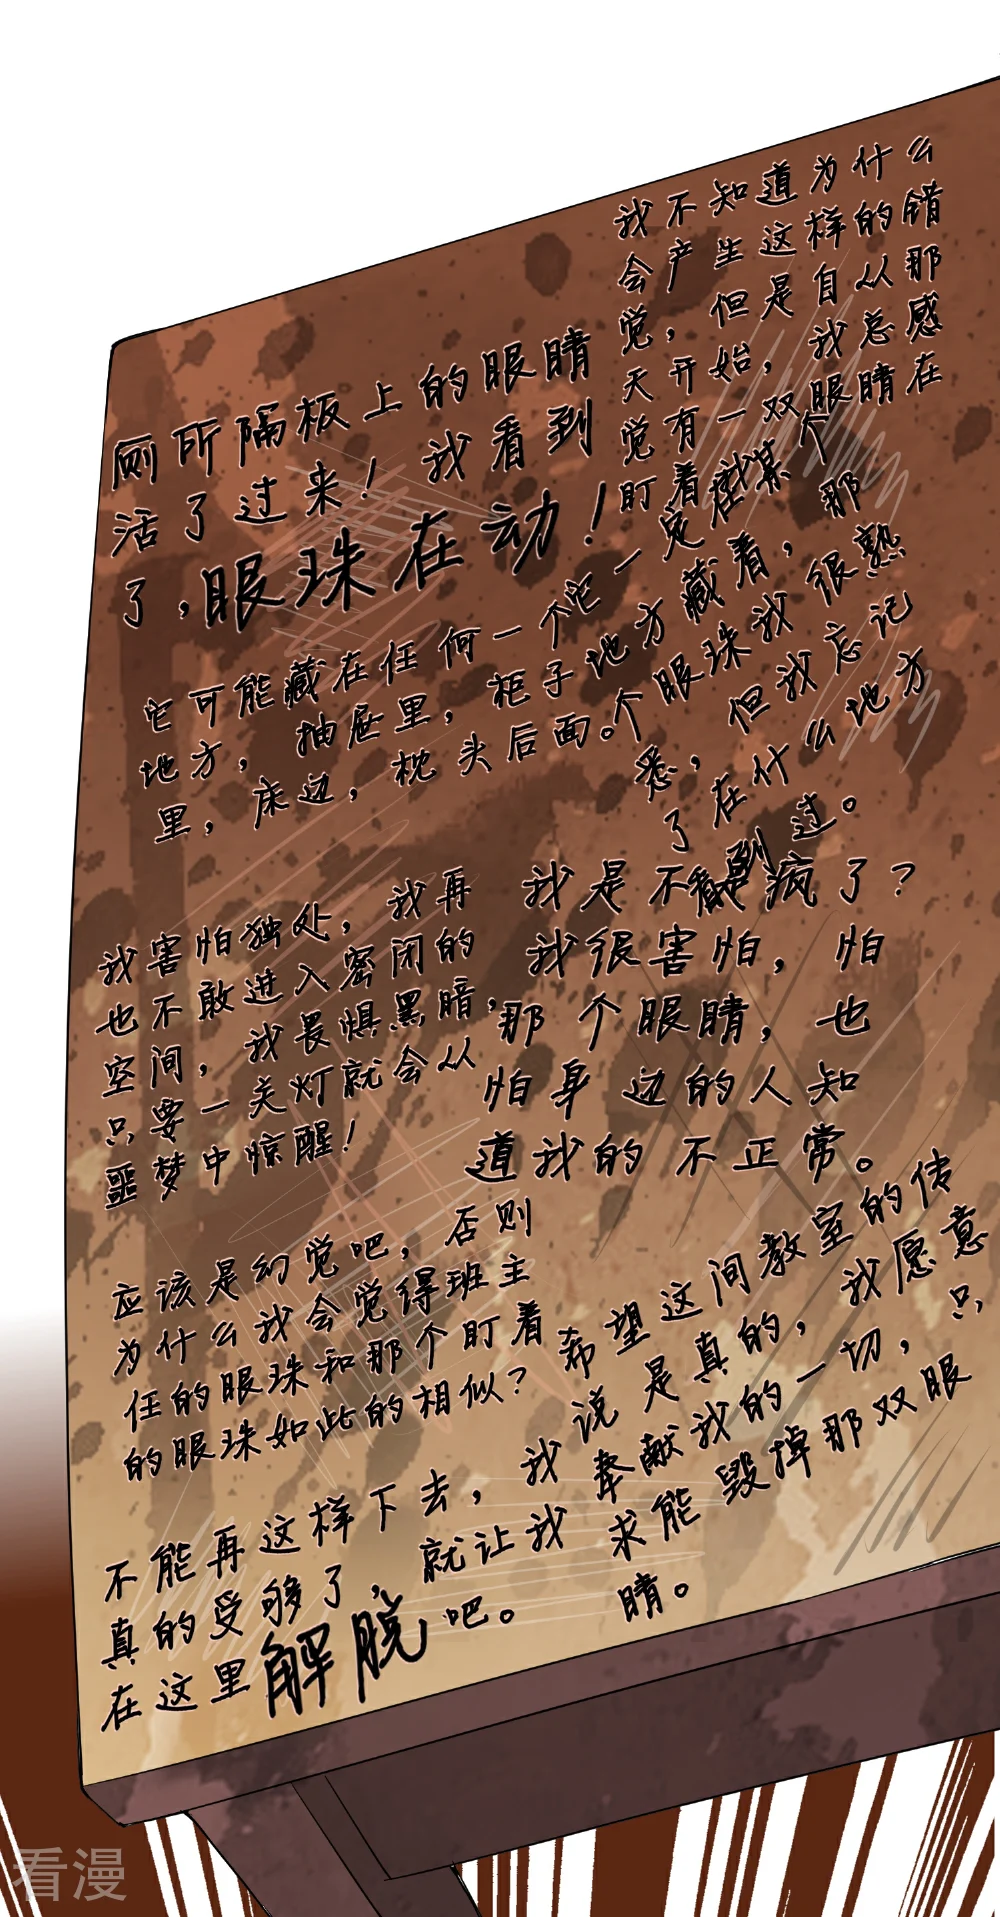 我不知道为什么
会产生这样的错
觉，但是自从那
天开始，我总感
觉有一双眼睛在
盯着我
厕所隔板上的眼睛
活了过来！我看到
了，眼珠在动！
它一定在某个
地方藏着，那
个眼珠我很熟
悉，但我忘记
了在什么地方
看到过。
它可能藏在任何一个
地方，抽屉里，柜子
里，床边，枕头后面。
我害怕独处，我再
也不敢进入密闭的
空间，我畏惧黑暗，
只要一关灯就会从
噩梦中惊醒！
我是不是疯了？
我很害怕，怕
那个眼睛，也
怕身边的人知
道我的不正常。
应该是幻觉吧，否则
为什么我会觉得班主
任的眼珠和那个盯着
的眼珠如此的相似？
希望这间教室的传
说是真的，我愿意
奉献我的一切，只
求能毁掉那双眼
睛。
不能再这样下去，我
真的受够了，就让我
在这里解脱吧。
看漫